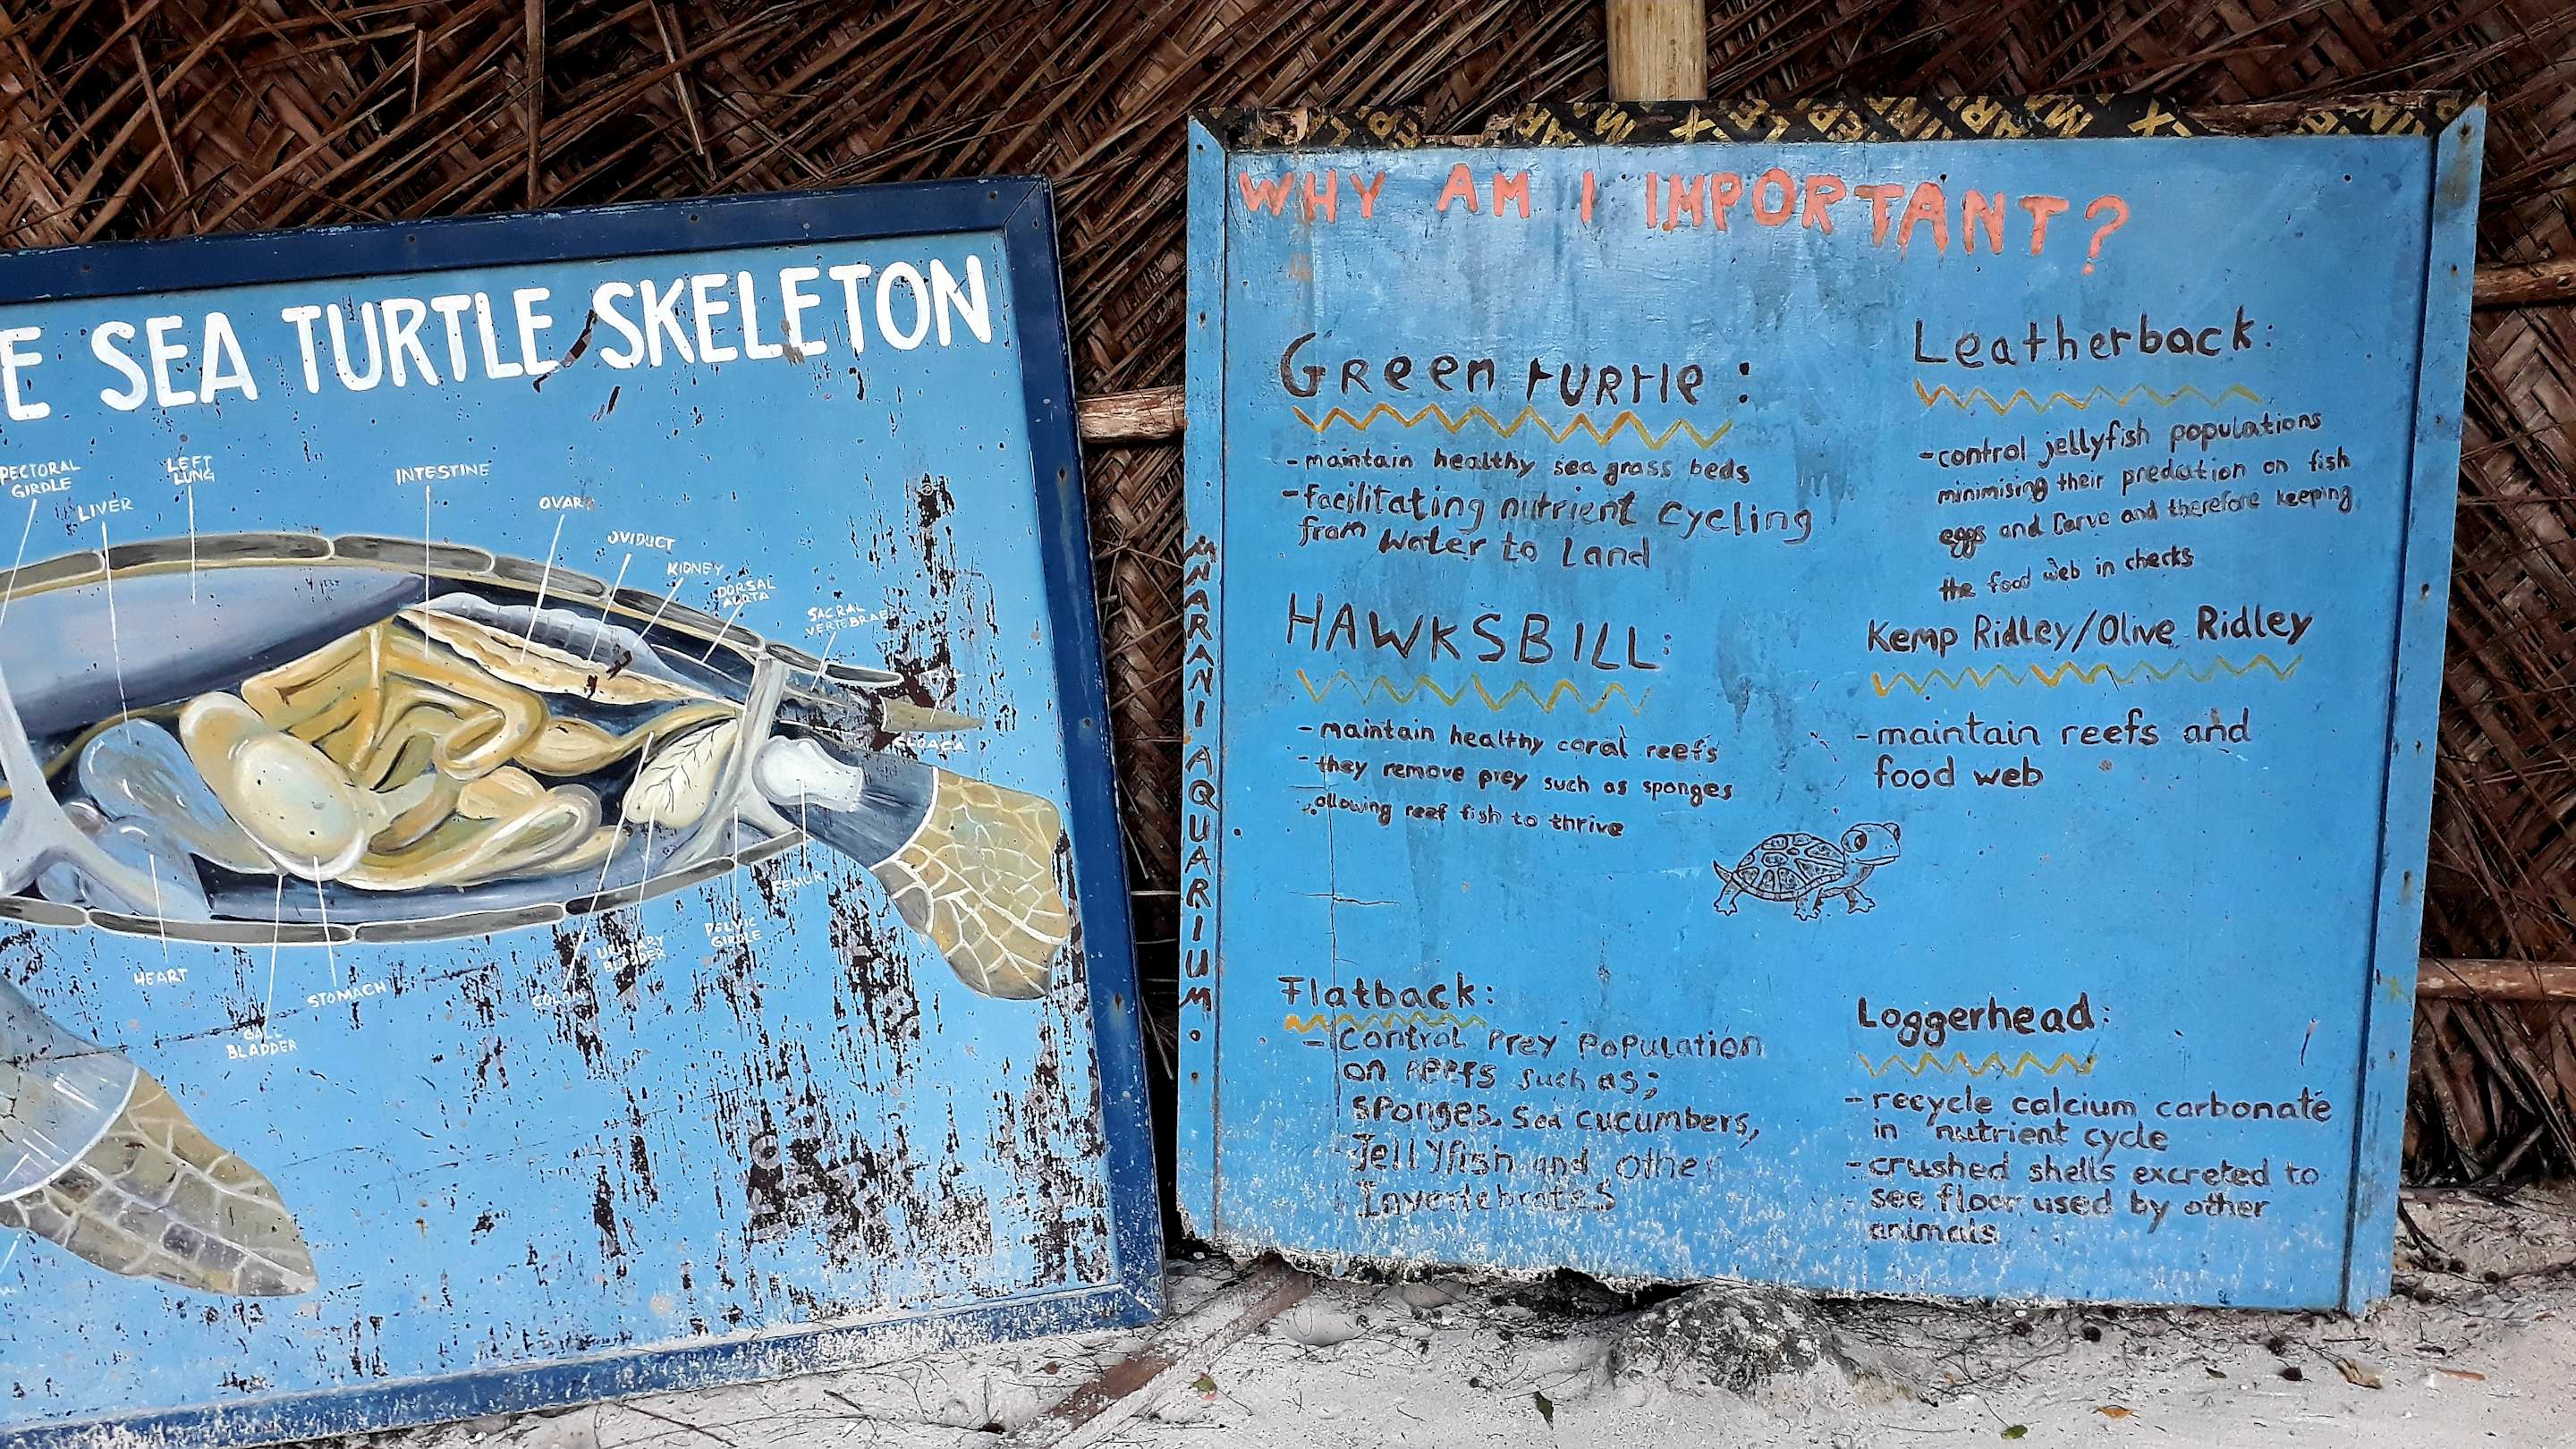 E SEA TURTLE SKELETON
PECTORAL
GIRDLE
LIVER
LEFT
LUNG
INTESTINE
OVARY
OVIDUCT
KIDNEY
DORSAL
AORTA
SACRAL
VERTEBRAE
CLOACA
FEMUR
PELVIC
GIRDLE
URINARY
BLADDER
COLON
STOMACH
GALL
BLADDER
HEART
MNARANI AQUARIUM..
WHY AM I IMPORTANT?
Green turtle:
-maintain healthy sea grass beds
-facilitating nutrient cycling
from water to Land
HAWKSBILL:
-maintain healthy coral reefs
-they remove prey such as sponges
allowing reef fish to thrive
Flatback:
-Control Prey Population
on Reefs such as;
Sponges, Sea cucumbers,
Jellyfish and other
Invertebrates
Leatherback:
-control jellyfish populations
minimising their predation on fish
eggs and larve and therefore keeping
the food web in checks
Kemp Ridley/Olive Ridley
-maintain reefs and
food web
Loggerhead:
-recycle calcium carbonate
in nutrient cycle
-crushed shells excreted to
see floor used by other
animals